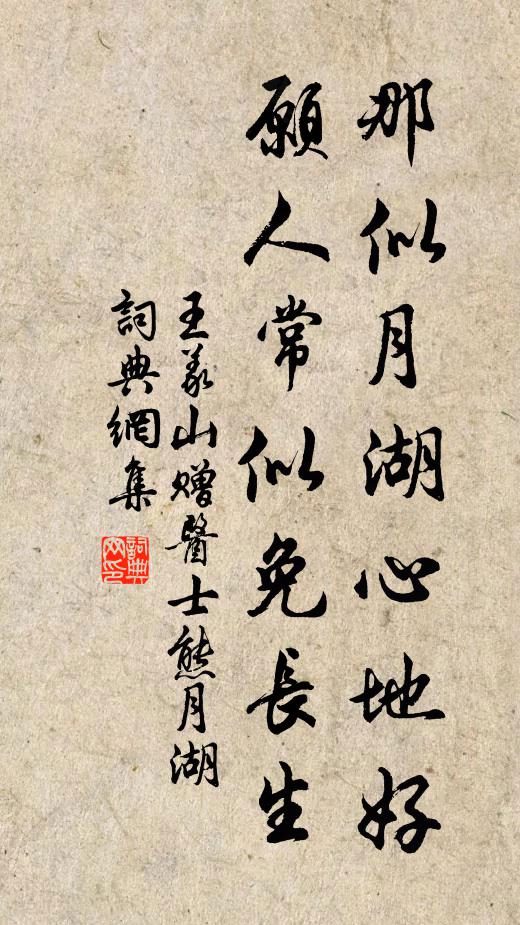 那似月湖心地好
願人常似免長生
王義山贈醫士熊月湖
詞典網集
詞典网印